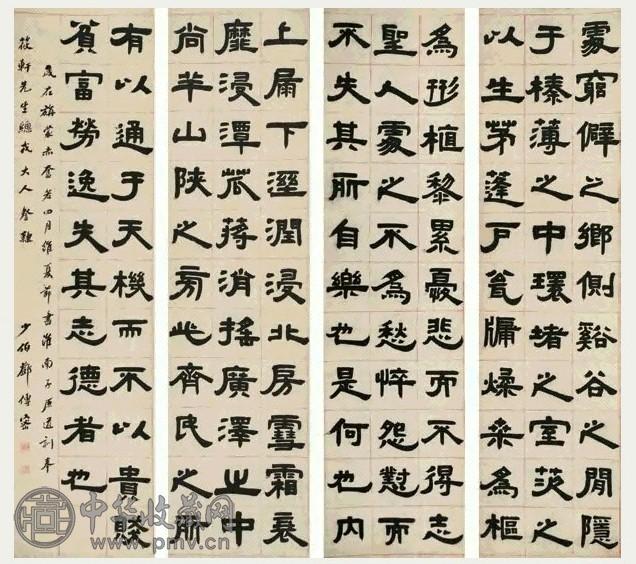 處窮僻之鄉側谿谷之閒隱
于榛薄之中環堵之室茨之
以生茅蓬戶瓮牖煣桑為樞
為形植黎累憂悲而不得志
聖人處之不為愁悴怨懟而
不失其所自樂也是何也內
上屚下溼潤浸北房雪霜衰
靡浸潭苽蔣消搖廣澤之中
尚羊山陝之旁此齊民之所
有以通于天機而不以貴賤
貧富勞逸失其志德者也
歲在旃蒙赤奮若四月維夏節書淮南子原道訓奉
筱軒先生總戎大人 少伯鄧傳密
中华收藏网
www.pmv.cn